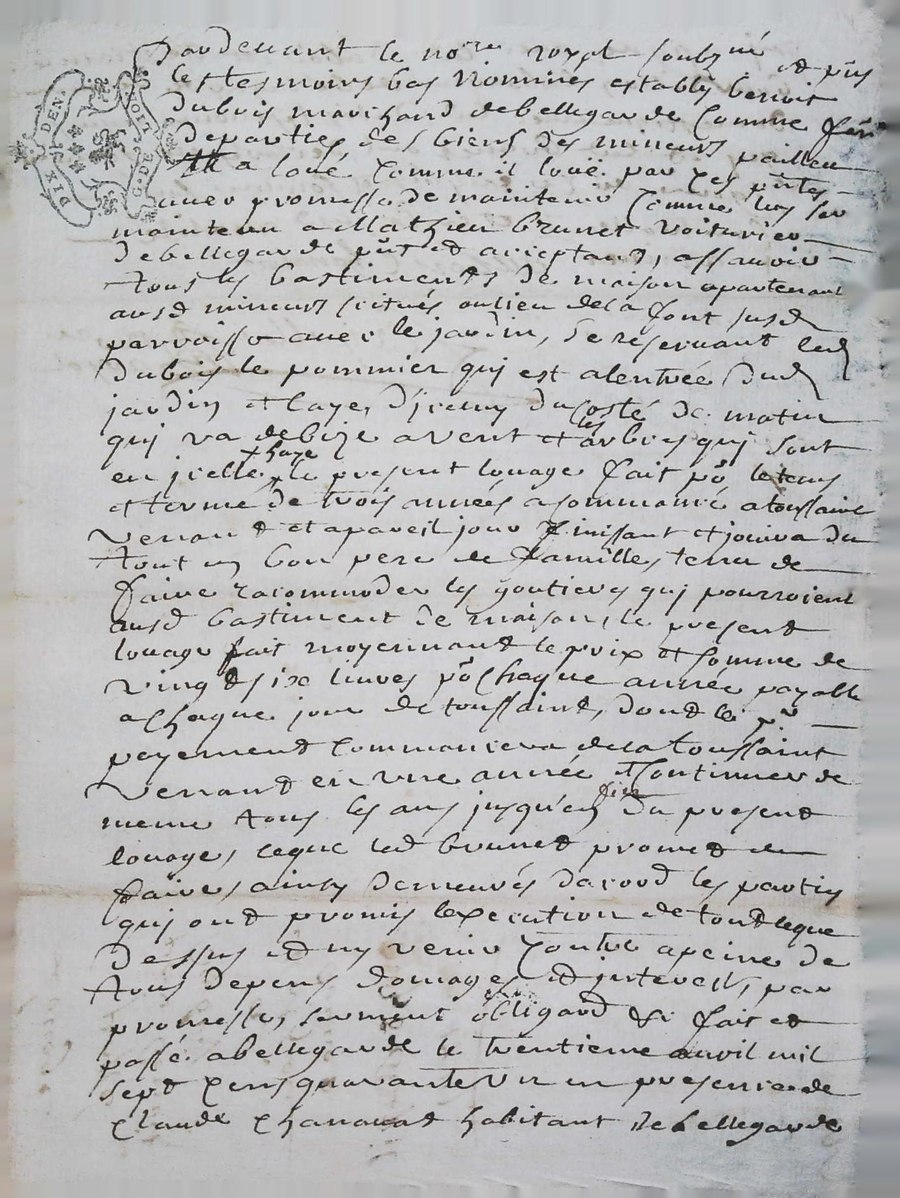 XIII DEN. G. DE NOIT
Pardevant le no.re royal soubz.né et p̃ns
les tesmoins bas nommés establÿ benoit
dubois marchand debellegarde comme
departie des biens des mineurs paillieu
a loué comme il louë par ces p̃ntes
avec promesse de maintenir comme
maintenu a Mathieu brunet voiturier
debellegarde pñt et acceptant, assavoir
tous les bastiments de maison apartenant
ausd mineurs scitués aulieu dela font susd
parroisse avec le jardin, se reservant led
dubois le pommier qui est alentrée dud
jardin et laye, d'icelluy du costé de matin
qui va debize avent et les arbres qui sont
en icelle haye le present louage fait põ le tems
et terme de trois années a commancé a toussaint
venant et apareil jour finissant et jouira du
tout en bon pere de famille, tenu de
faire racommoder les goutieres qui pourroient
ausd bastiment de maison, le present
louage fait moyennant le prix et somme de
vingt six livres põ chaque année payable
a chaque jour de toussaint, dont le pr
payement commancera dela toussaint
venant en une année et continuer de
meme tous les ans jusqu'en fin du present
louage, ceque led brunet promet de
faire, ainsy demeurés dacord les parties
qui ont promis lexecution de tout ceque
dessus et ny venir contre apeine de
tous depens domages et interest, par
promesse, serment obligaõn &c fait et
passé a bellegarde le trentieme avril mil
sept cens quarante un en presence de
claude chanavat habitant de bellegarde